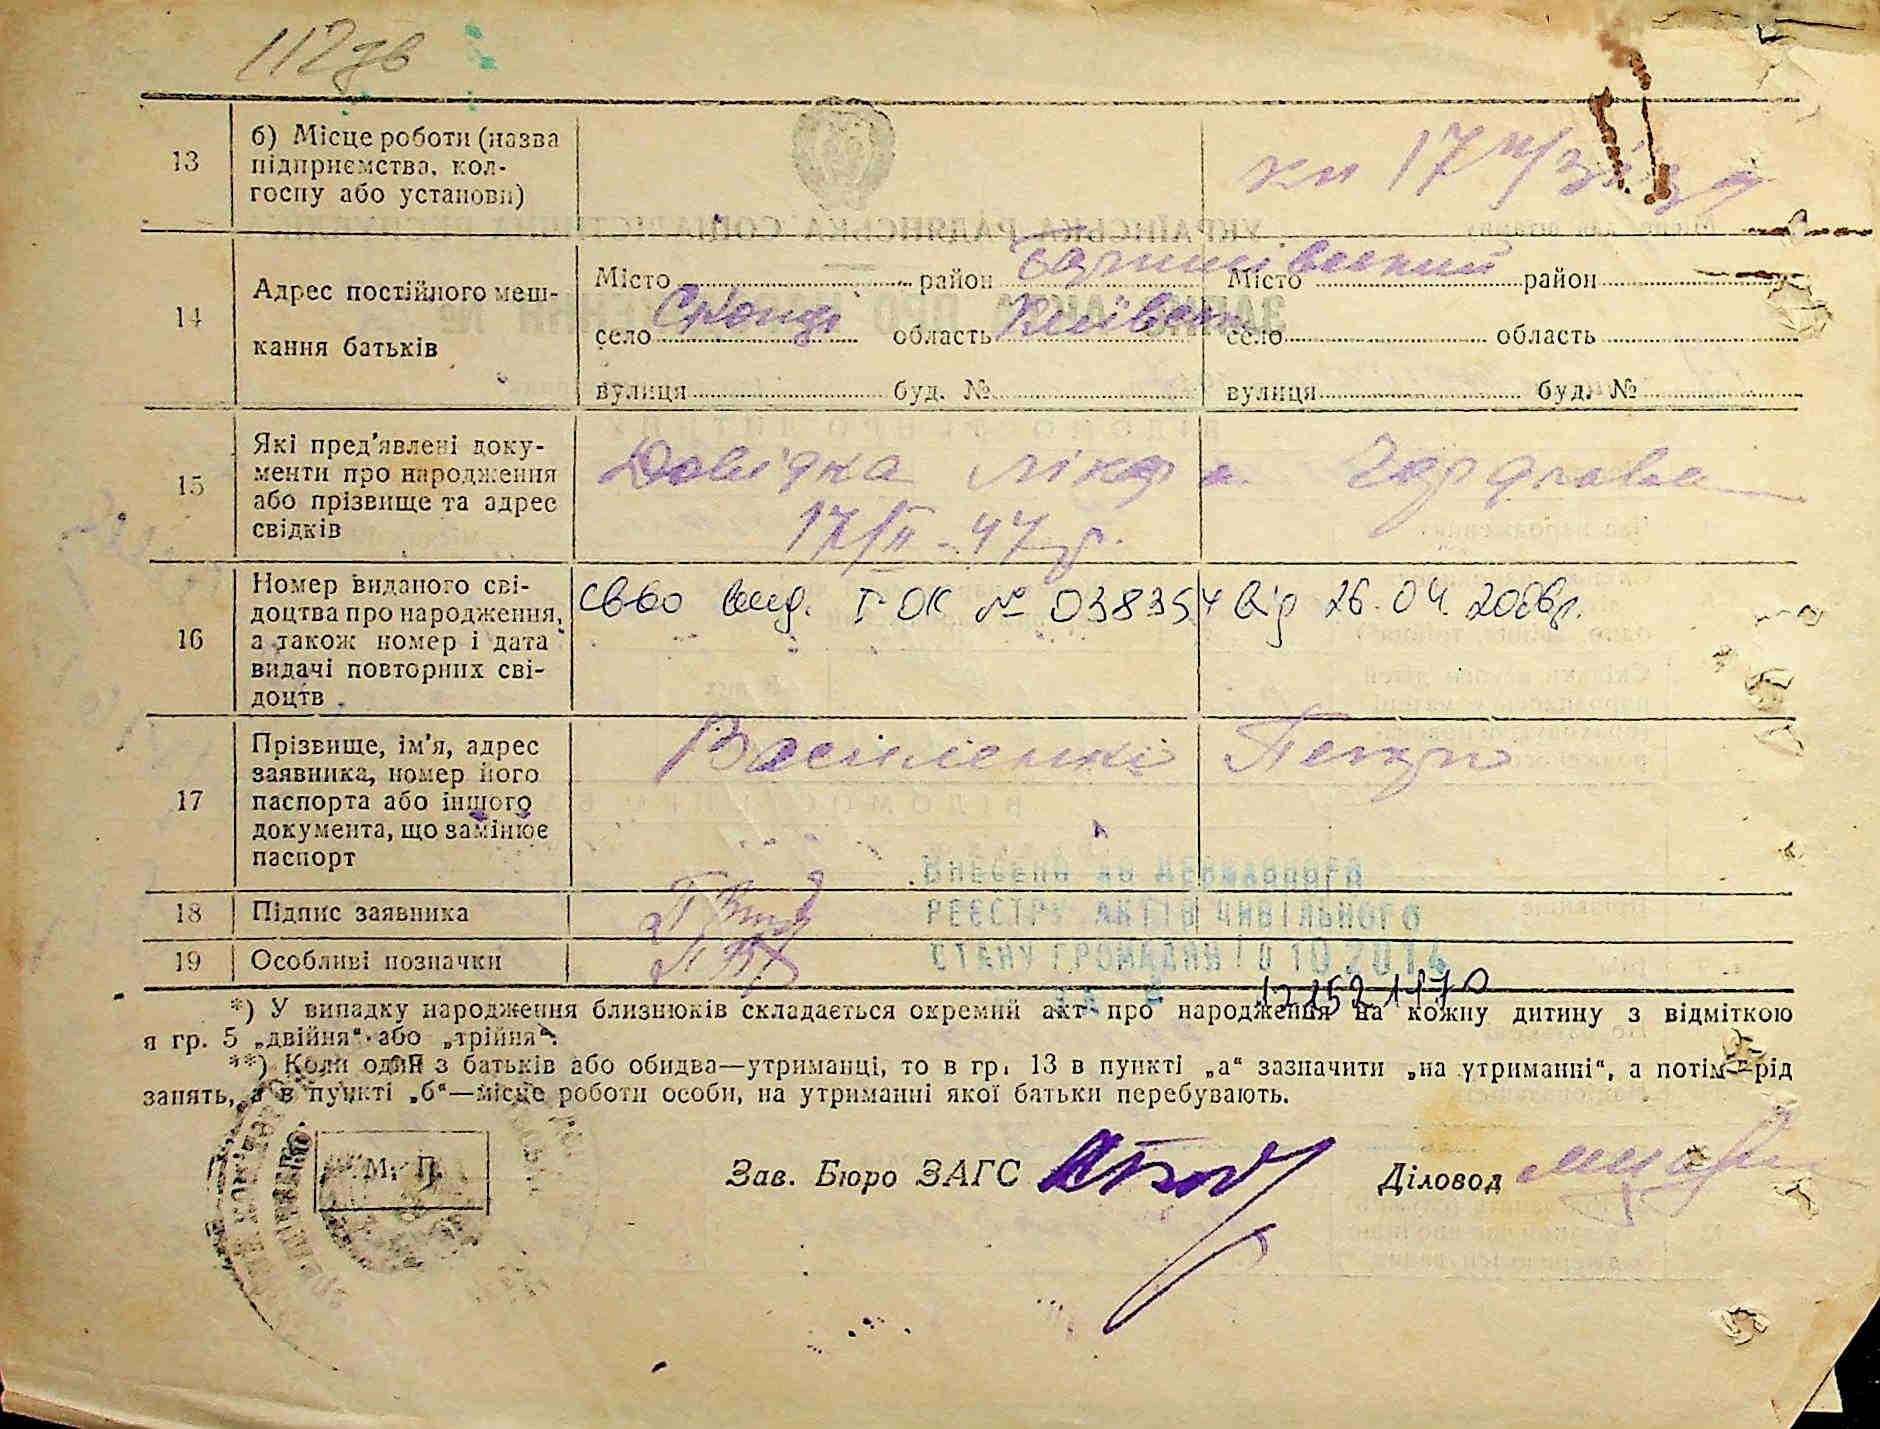 112 зв
13
б) Місце роботи (назва
підприємства, кол-
госпу або установи)
14
Адрес постійного меш-
кання батьків
Місто район Баришівський
село область Київськ
вулиця буд. №
Місто район
село область
вулиця буд. №
15
Які пред'явлені доку-
менти про народження
або прізвище та адрес
свідків
Довідка
17/II-47р.
16
Номер виданого сві-
доцтва про народження,
а також номер і дата
видачі повторних сві-
доцтв
св-во вид. І-ОК № 038354 від 26.04.2006р.
17
Прізвище, ім'я, адрес
заявника, номер його
паспорта або іншого
документа, що замінює
паспорт
Василенко Петро
18
Підпис заявника
19
Особливі позначки
ВНЕСЕНО ДО ДЕРЖАВНОГО
РЕЄСТРУ АКТІВ ЦИВІЛЬНОГО
СТАНУ ГРОМАДЯН 10 2014
*) У випадку народження близнюків складається окремий акт про народження на кожну дитину з відміткою
я гр. 5 „двійня“ або „трійня“.
**) Коли один з батьків або обидва—утриманці, то в гр. 13 в пункті „а“ зазначити „на утриманні“, а потім рід
занять, а в пункті „б“—місце роботи особи, на утриманні якої батьки перебувають.
М. П.
Зав. Бюро ЗАГС
Діловод